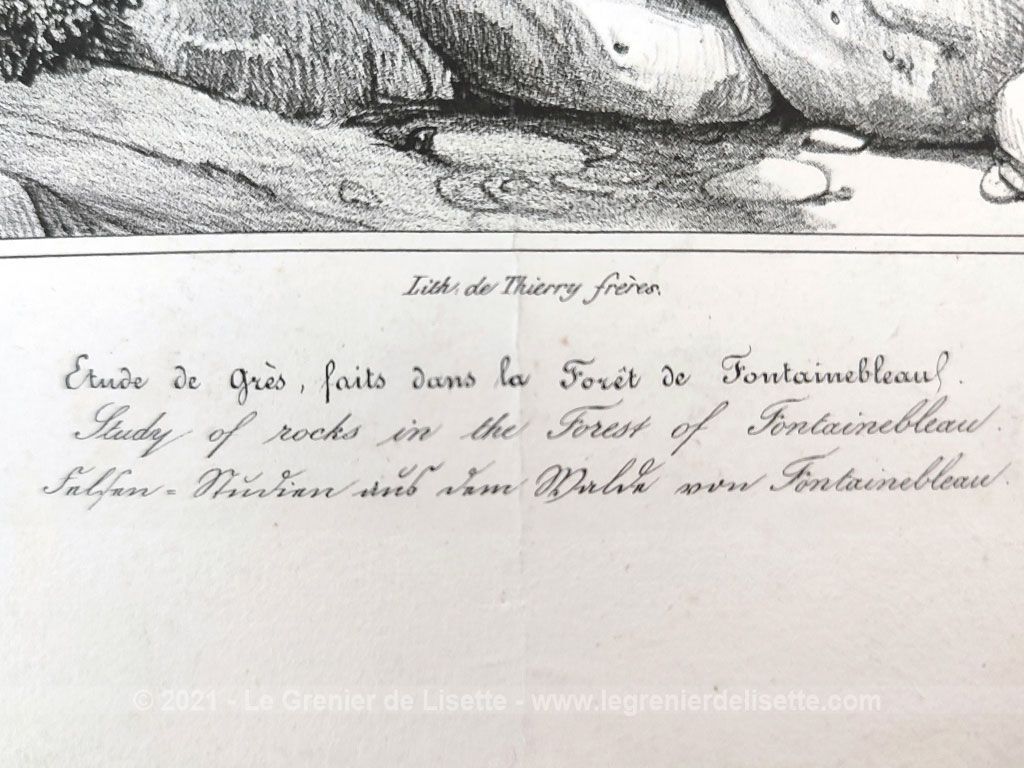 Lith. de Thierry frères.
Etude de Grès, faits dans la Forêt de Fontainebleau.
Study of rocks in the Forest of Fontainebleau.
Felsen = Studien aus dem Walde von Fontainebleau.
© 2021 - Le Grenier de Lisette - www.legrenierdelisette.com